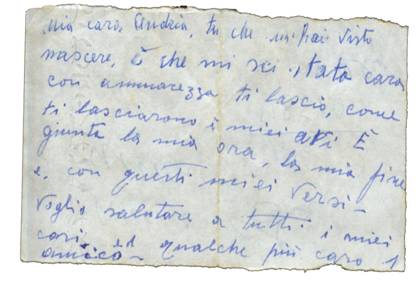 mia cara Andria, tu che mi hai visto
nascere, È che mi sei stata cara
con ammarezza ti lascio, come
ti lasciarono i miei avi È
giunta la mia ora, la mia fine
e, con questi miei versi -
Voglio salutare a tutti i miei
cari ed qualche più caro
amico -